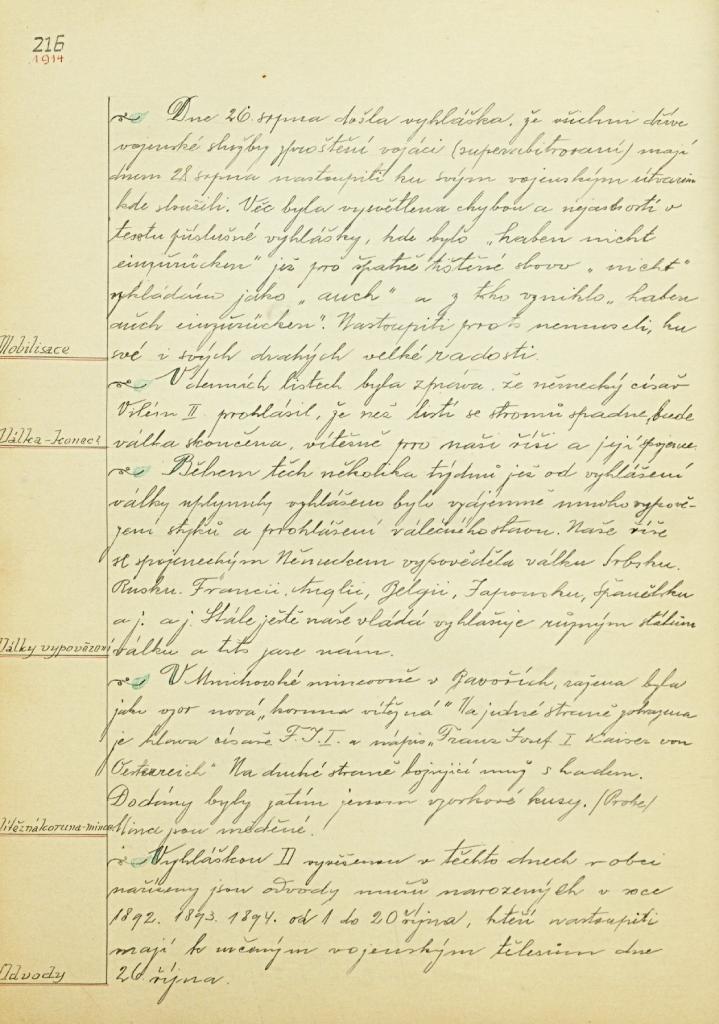 216
1914
Dne 26. srpna došla vyhláška, že všichni dříve
vojenské služby zproštění vojáci (superarbitrovaní) mají
dnem 28 srpna nastoupiti ku svým vojenským útvarům
kde sloužili. Věc byla vysvětlena chybou a nejasností v
textu příslušné vyhlášky, kde bylo „haben nicht
einzurücken" jež pro špatně tištěné slovo „nicht"
vykládáno jako „auch" a z toho vzniklo „haben
auch einzurücken". Nastoupiti proto nemuseli, ku
Mobilisace
své i svých drahých velké radosti.
V denních listech byla zpráva, že německý císař
Vilém II. prohlásil, že než listí se stromů spadne, bude
Válka-konec
válka skončena, vítězně pro naši říši a její spojence.
Během těch několika týdnů jež od vyhlášení
války uplynuly vyhlášeno bylo vzájemně mnoho vypově-
zení styků a prohlášení válečného stavu. Naše říše
se spojeneckým Německem vypověděla válku Srbsku.
Rusku. Francii, Anglii, Belgii, Japonsku, Španělsku
a j. a j. Stále ještě naše vláda vyhlašuje různým státům
Války vypovězení
válku a tito zase nám.
V Mnichovské mincovně v Bavořích, ražena byla
jako vzor nová „koruna vítězná" Na jedné straně
je hlava císaře F.J.I. a nápis „Franz Josef I Kaiser von
Oesterreich" Na druhé straně bojující muž s hadem.
Dodány byly zatím jenom vzorkové kusy. /Probe/
Vítězná koruna-mince
Mince jsou měděné.
Vyhláškou II vyvěšenou v těchto dnech v obci
nařízeny jsou odvody mužů narozených v roce
1892. 1893. 1894. od 1 do 20 října, kteří nastoupiti
mají k určeným vojenským tělesům dne
Odvody
26. října.